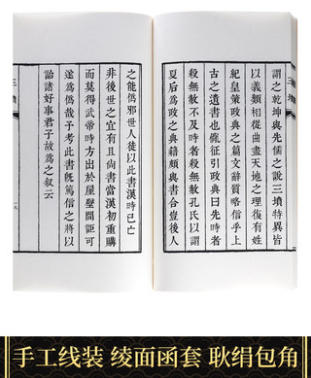 謂之乾坤與先儒之說三墳特異皆
以義類相從曲盡天地之理復有姓
紀皇策政典之篇文辭質略信乎上
古之遺書也胤征引政典曰先時者
殺無赦不及時者殺無赦孔氏以謂
夏后爲政之典籍頗與書合豈後人
之能僞邪世人徒以此書漢時已亡
非後世之宜有且尚書當漢初重購
而莫得武帝時方出於屋壁間詎可
遂爲僞哉予考此書旣篤信之將以
詒諸好事君子故爲之叙云
手工线装 绫面函套 耿绢包角